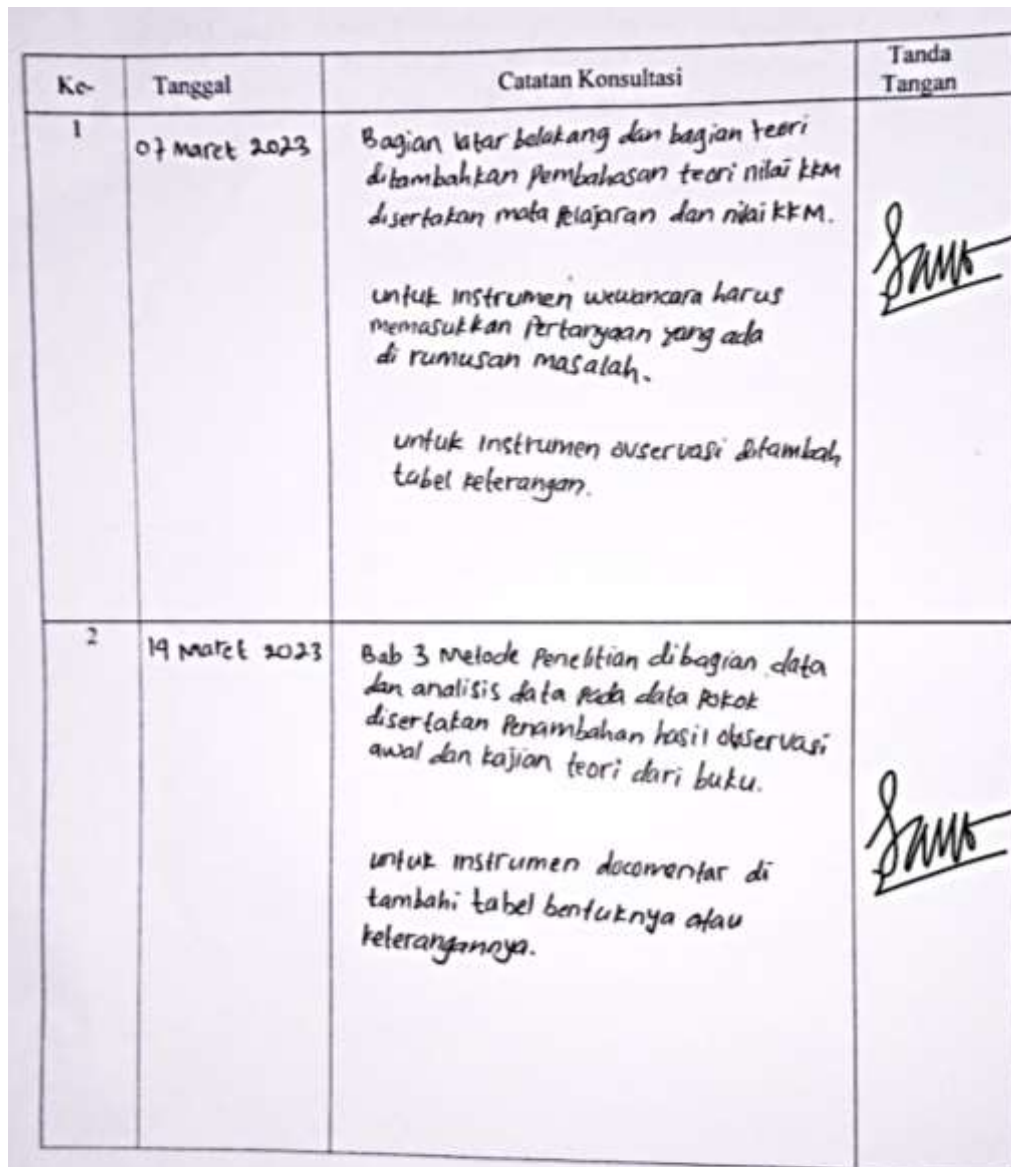 Ke-
Tanggal
Catatan Konsultasi
Tanda
Tangan
1
07 Maret 2023
Bagian latar belakang dan bagian teori
ditambahkan Pembahasan teori nilai KKM
disertakan mata Pelajaran dan nilai KKM.
untuk instrumen wewancara harus
memasukkan Pertanyaan yang ada
di rumusan masalah.
untuk instrumen ovservasi ditambah
tabel keterangan.
2
Maret 2023
Bab 3 Metode Penelitian dibagian data
dan analisis data Pada data Pokok
disertakan Penambahan hasil observasi
awal dan kajian teori dari buku.
untuk instrumen documentar di
tambahi tabel bentuknya atau
keterangannya.